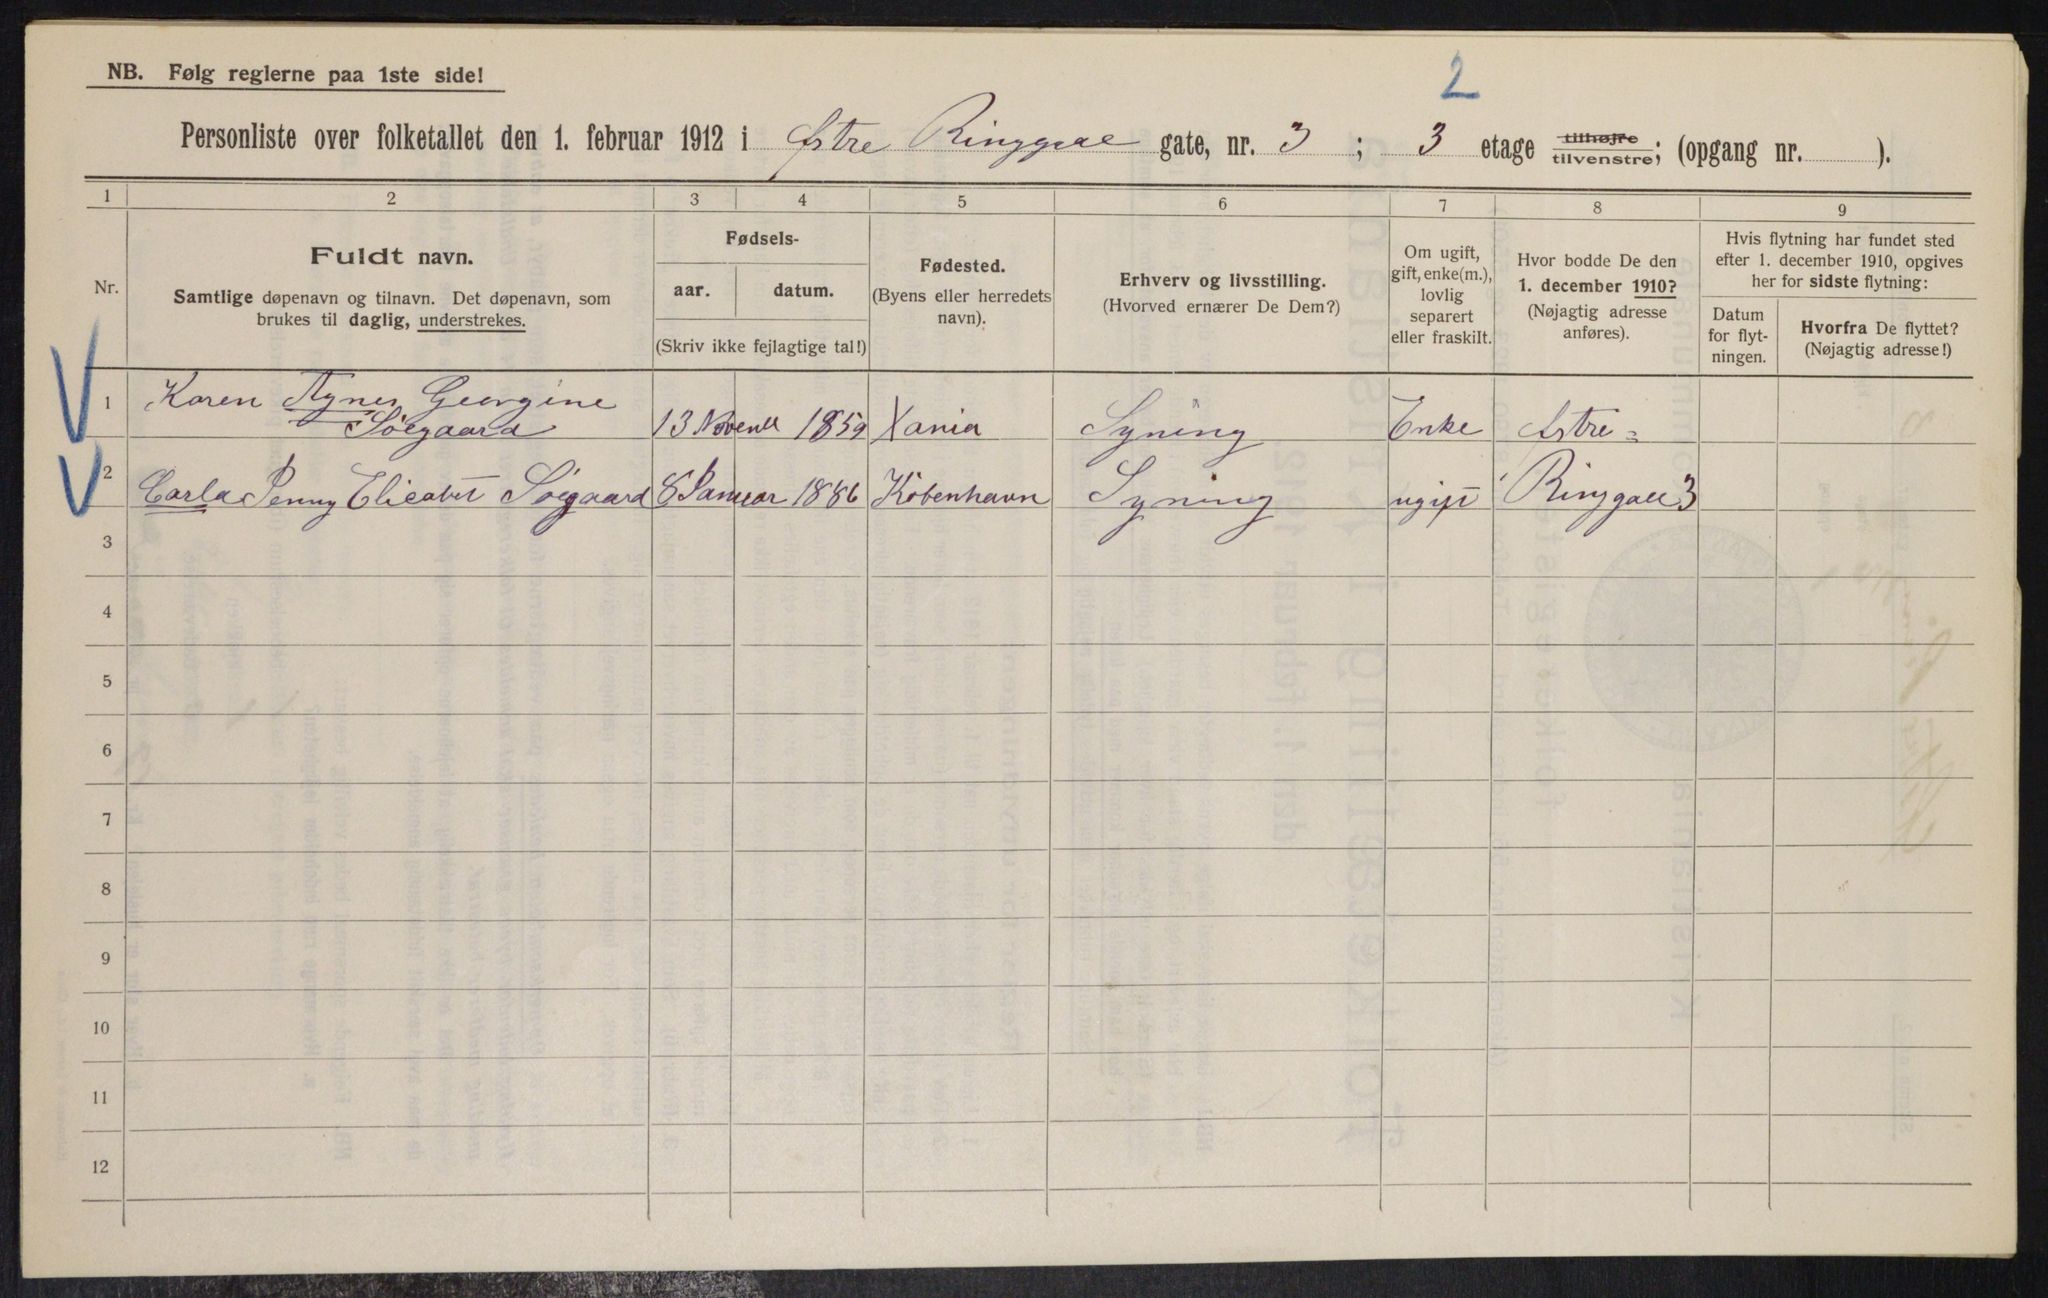 2
NB. Følg reglerne paa 1ste side!
Personliste over folketallet den 1. februar 1912 i Østre Ringgae gate, nr. 3 ; 3 etage tilhøjre tilvenstre; (opgang nr. ).
1 2 3 4 5 6 7 8 9
Nr.
Fuldt navn.
Samtlige døpenavn og tilnavn. Det døpenavn, som
brukes til daglig, understrekes.
Fødsels-
aar. datum.
(Skriv ikke fejlagtige tal!)
Fødested.
(Byens eller herredets
navn).
Erhverv og livsstilling.
(Hvorved ernærer De Dem?)
Om ugift,
gift, enke(m.),
lovlig
separert
eller fraskilt.
Hvor bodde De den
1. december 1910?
(Nøjagtig adresse
anføres).
Hvis flytning har fundet sted
efter 1. december 1910, opgives
her for sidste flytning:
Datum
for flyt-
ningen.
Hvorfra De flyttet?
(Nøjagtig adresse!)
1 Karen Agnes Georgine
Söegaard 13 Novembr 1859 Xania Syning Enke Østre
2 Carla Penny Elisabet Söegaard 8 Januar 1886 Köbenhavn Syning ugift Ringgae 3
3
4
5
6
7
8
9
10
11
12